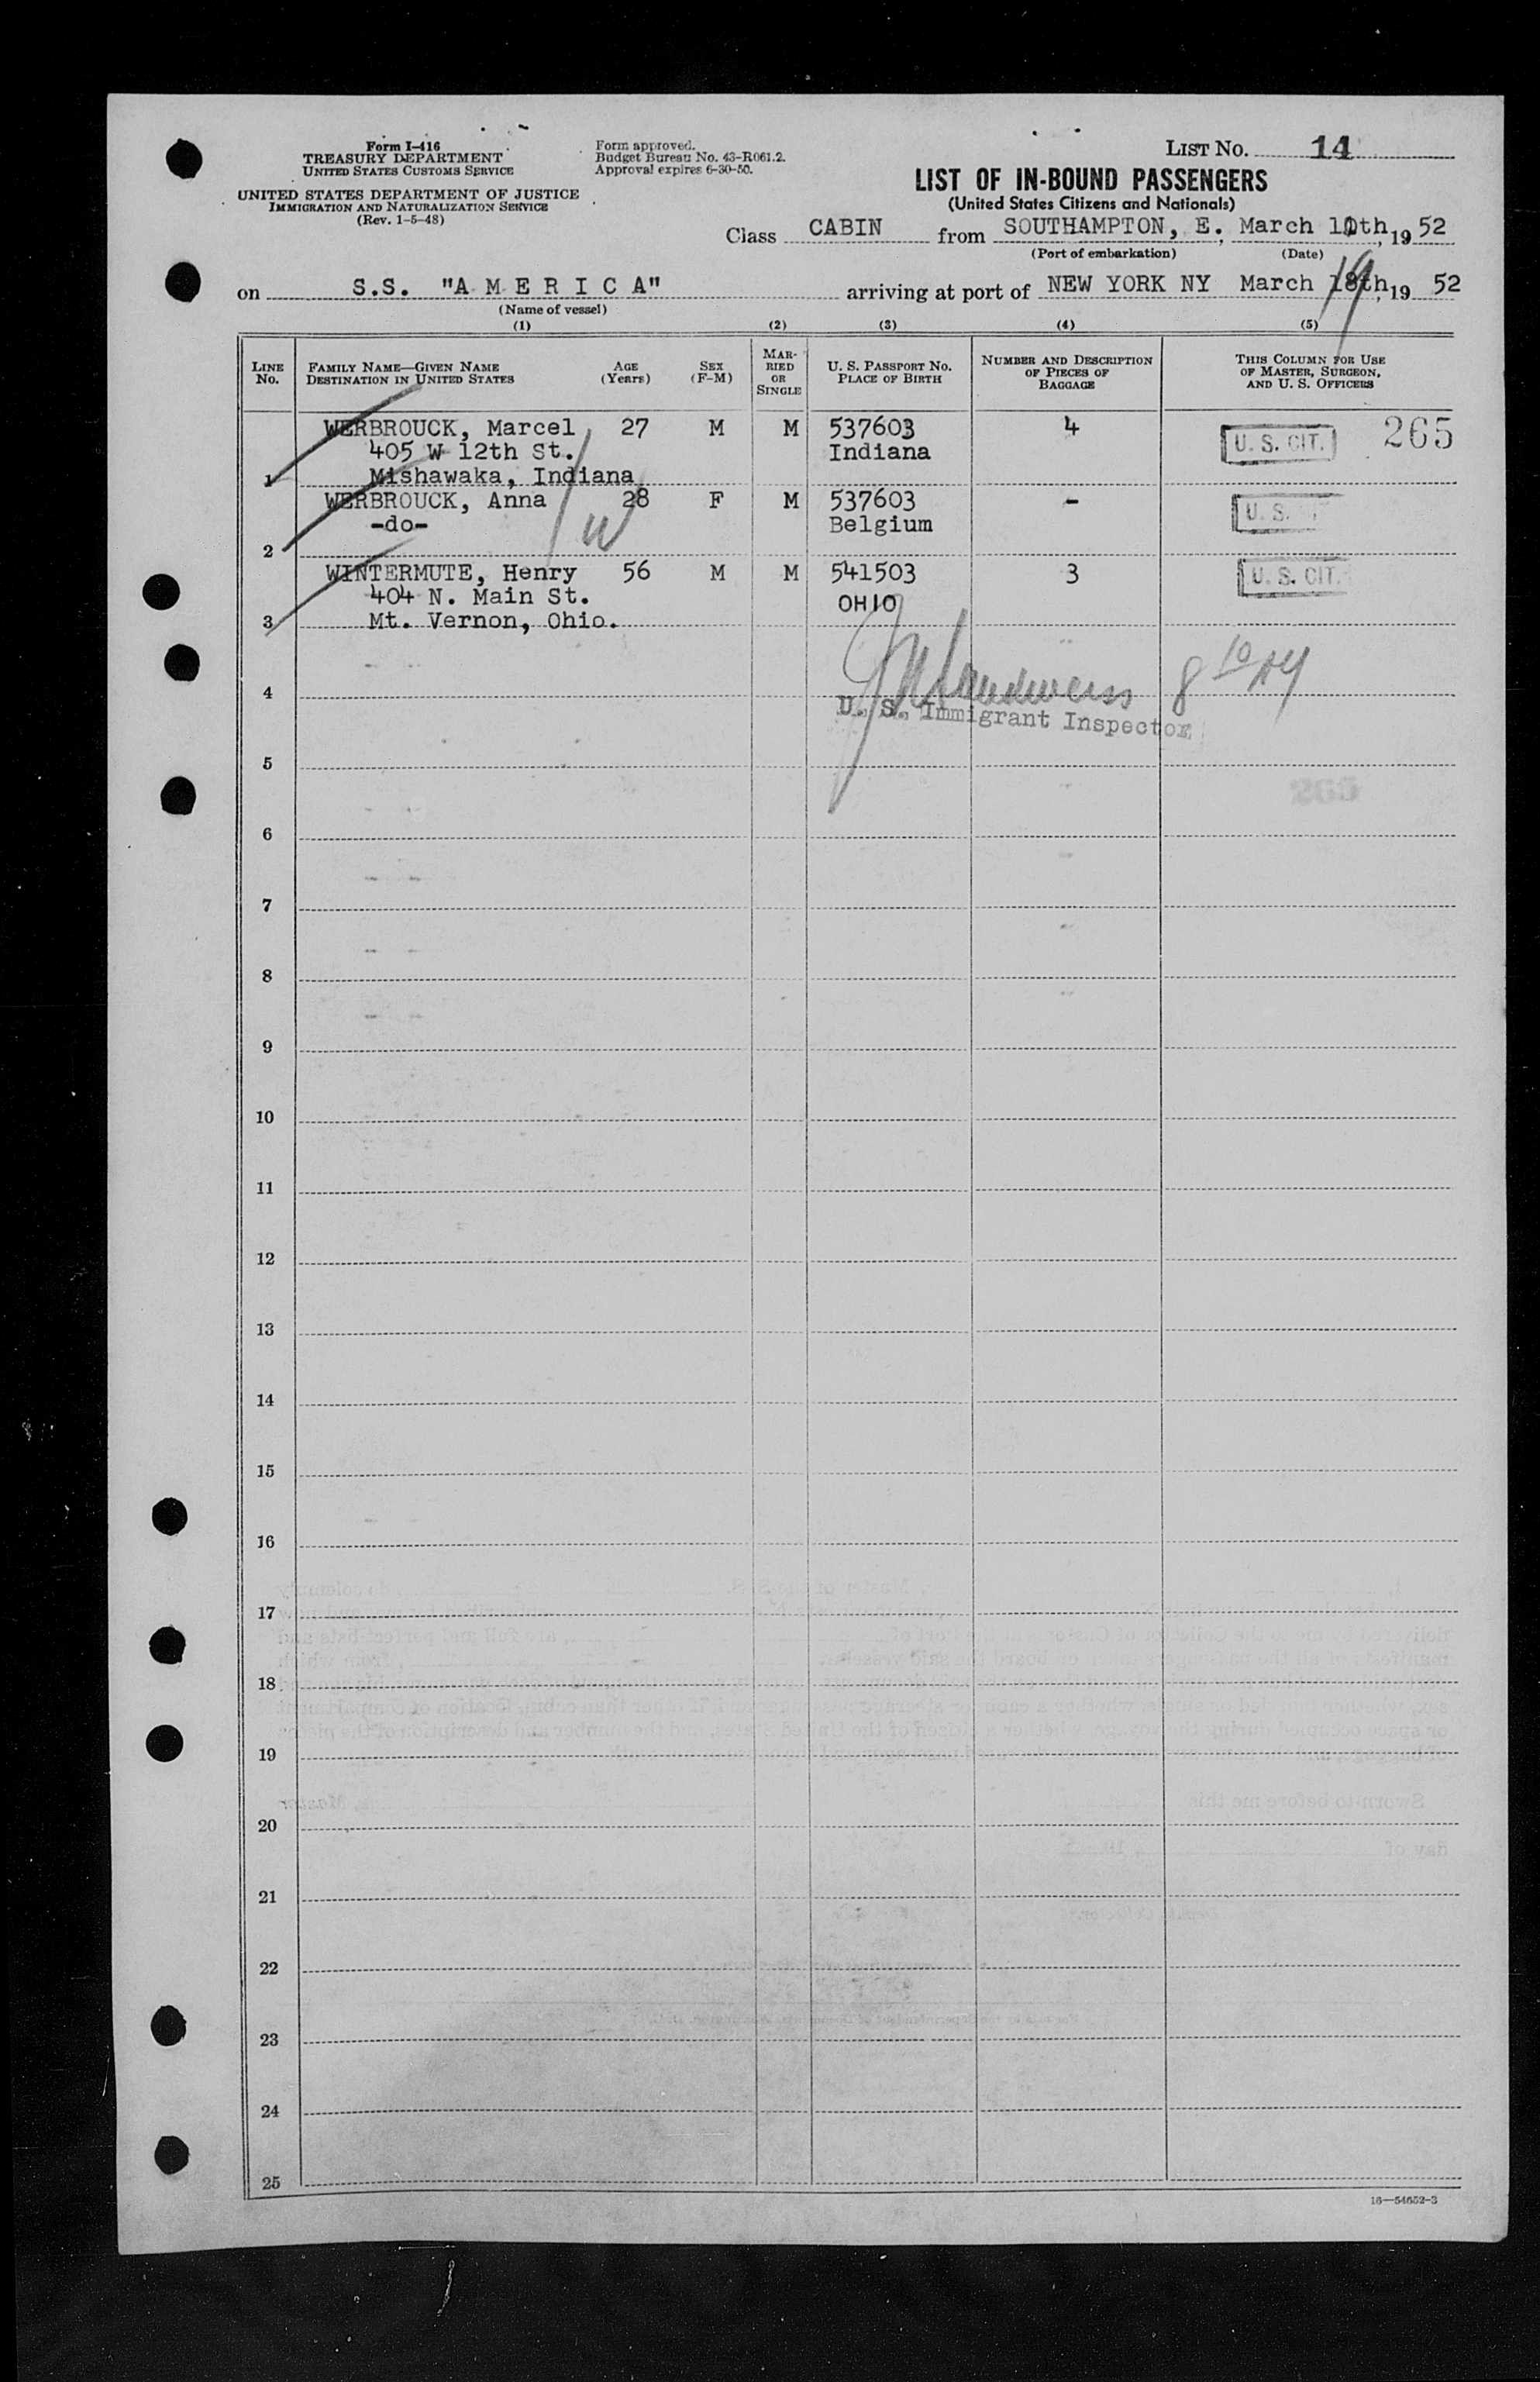 Form I-416
TREASURY DEPARTMENT
UNITED STATES CUSTOMS SERVICE
UNITED STATES DEPARTMENT OF JUSTICE
IMMIGRATION AND NATURALIZATION SERVICE
(Rev. 1-5-48)
Form approved.
Budget Bureau No. 43-R061.2.
Approval expires 6-30-50.
LIST No. 14
LIST OF IN-BOUND PASSENGERS
(United States Citizens and Nationals)
Class CABIN from SOUTHAMPTON, E. March th, 1952
(Port of embarkation) (Date)
on S.S. "A M E R I C A" arriving at port of NEW YORK NY March 19th, 19 52
(Name of vessel)
(1) (2) (3) (4) (5)
LINE No. FAMILY NAME—GIVEN NAME DESTINATION IN UNITED STATES AGE (Years) SEX (F-M) MARRIED OR SINGLE U. S. PASSPORT No. PLACE OF BIRTH NUMBER AND DESCRIPTION OF PIECES OF BAGGAGE THIS COLUMN FOR USE OF MASTER, SURGEON, AND U. S. OFFICERS
WERBROUCK, Marcel 27 M M 537603 4 U. S. CIT. 265
405 W 12th St. Indiana
1 Mishawaka, Indiana
WERBROUCK, Anna 28 F M 537603 - U. S.
-do- Belgium
W
2
WINTERMUTE, Henry 56 M M 541503 3 U. S. CIT.
404 N. Main St. OHIO
3 Mt. Vernon, Ohio.
8 10
4
U. S. Immigrant Inspector
5
6
7
8
9
10
11
12
13
14
15
16
17
18
19
20
21
22
23
24
25
16—54652-3